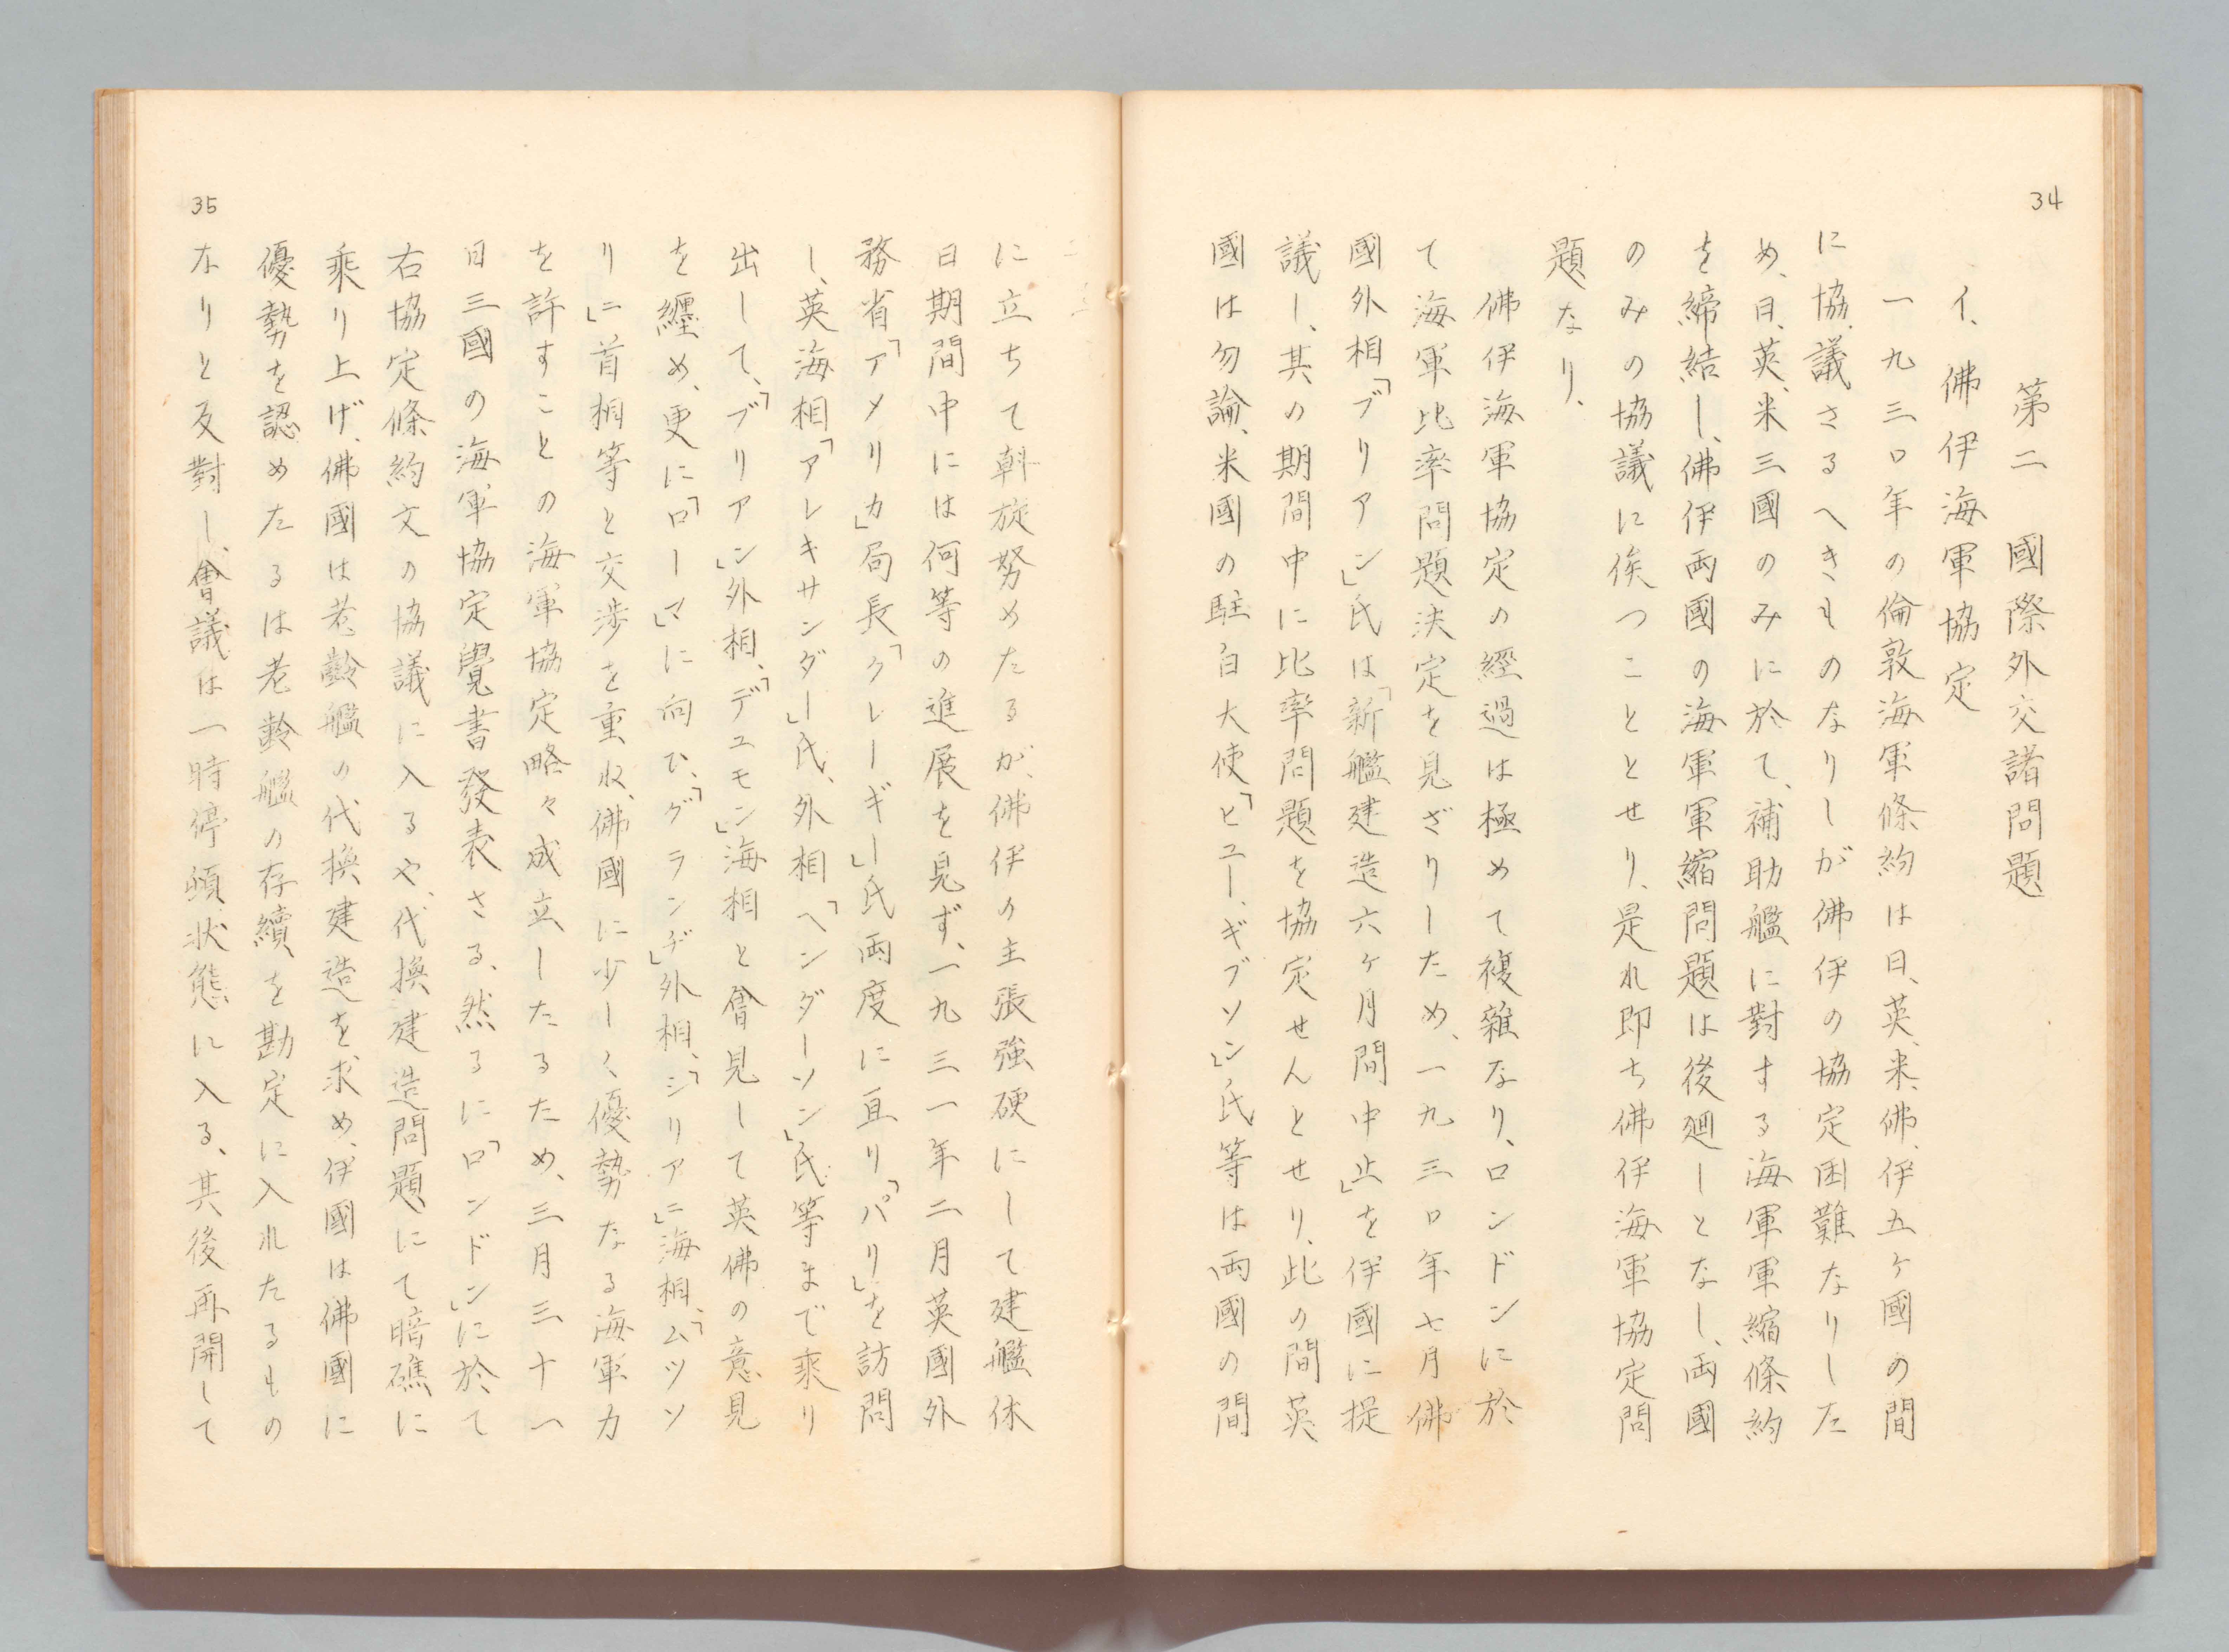 34
第二　國際外交諸問題
イ、佛伊海軍協定
一九三〇年の倫敦海軍條約は日、英、米、佛、伊五ヶ國の間
に協議さるへきものなりしが佛伊の協定困難なりした
め、日、英、米三國のみに於て、補助艦に對する海軍軍縮條約
を締結し、佛伊両國の海軍軍縮問題は後廻しとなし、両國
のみの協議に俟つこととせり、是れ即ち佛伊海軍協定問
題なり、
佛伊海軍協定の經過は極めて複雜なり、ロンドンに於
て海軍比率問題決定を見ざりしため、一九三〇年七月佛
國外相「ブリアン」氏は「新艦建造六ヶ月間中止」を伊國に提
議し、其の期間中に比率問題を協定せんとせり、此の間英
國は勿論、米國の駐白大使「ヒユー、ギブソン」氏等は両國の間
に立ちて斡旋努めたるが、佛伊の主張強硬にして建艦休
日期間中には何等の進展を見ず、一九三一年二月英國外
務省「アメリカ」局長「クレーギー」氏両度に亘り「パリ」を訪問
し、英海相「アレキサンダー」氏、外相「ヘンダーソン」氏等まで乘り
出して、「ブリアン」外相、「デユモン」海相と會見して英佛の意見
を纒め、更に「ローマ」に向ひ、「グランヂ」外相、「シリアニ」海相、「ムツソ
リニ」首相等と交渉を重ね、佛國に少しく優勢なる海軍力
を許すことの海軍協定略々成立したるため、三月三十一
日三國の海軍協定覺書發表さる、然るに「ロンドン」に於て
右協定條約文の協議に入るや、代換建造問題にて暗礁に
乘り上げ、佛國は老齡艦の代換建造を求め、伊國は佛國に
優勢を認めたるは老齡艦の存續を勘定に入れたるもの
なりと反對し、會議は一時停頓狀態に入る、其後再開して
35